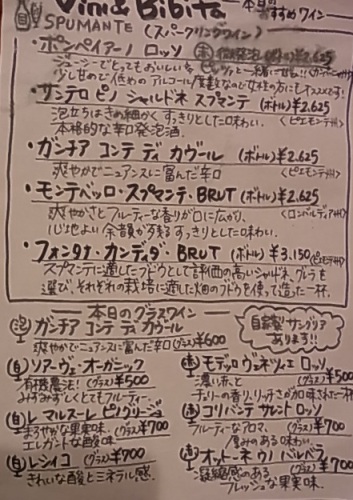 Vini & Bibita
本日の
おすすめワイン
SPUMANTE (スパークリングワイン)
・ポンペイアーノ ロッソ 赤 微発泡
ジューシーでとってもおいしいを
少し甘めで低めのアルコール度数なので女性の方にもオススメです!
・サンテロ ピノ シャルドネ スプマンテ (ボトル) ¥2.625
泡立ちはきめ細かく すっきりとした口味わい。 <ピエモンテ州>
本格的な辛口発泡酒。
・ガンチア コンテ ディ カヴール (ボトル) ¥2.625
爽やかでニュアンスに富んだ辛口 <ピエモンテ州>
・モンテベッロ・スプマンテ・BRUT (ボトル) ¥2.625
爽やかさとフルーティーな香りが口に広がり、 <ロンバルディア州>
心地よい余韻が残る すっきりとした味わい。
・フォンタナ・カンディダ・BRUT (ボトル) ¥3,150
スプマンテに適したブドウとして評価の高いシャルドネ、グレラを
選び、それぞれの栽培に適した畑のブドウを使って造った一杯。
本日のグラスワイン
泡 ガンチア コンテ ディ カヴール
爽やかでニュアンスに富んだ辛口 (グラス) ¥600
自家製 サングリア
あります!!
白 ソアーヴェ・オーガニック
有機農法! (グラス) ¥500
みずみずしくとてもフルーティー。
白 レ マルスーレ ピノグリージョ
まろやかな果実味、(グラス) ¥700
エレガントな酸味
白 レンイコ (グラス) ¥700
きれいな酸とミネラル感。
赤 モデッロ ヴェネツィエ ロッソ
濃い赤と (グラス) ¥500
チェリーの香り、リッチさが加味された一杯
赤 コリバンテ サレント ロッソ
フルーティーなアロマ、(グラス) ¥700
厚みのある味わい。
赤 オットーネ ウノ バルベラ
凝縮感のある (グラス) ¥700
フレッシュな果実味。